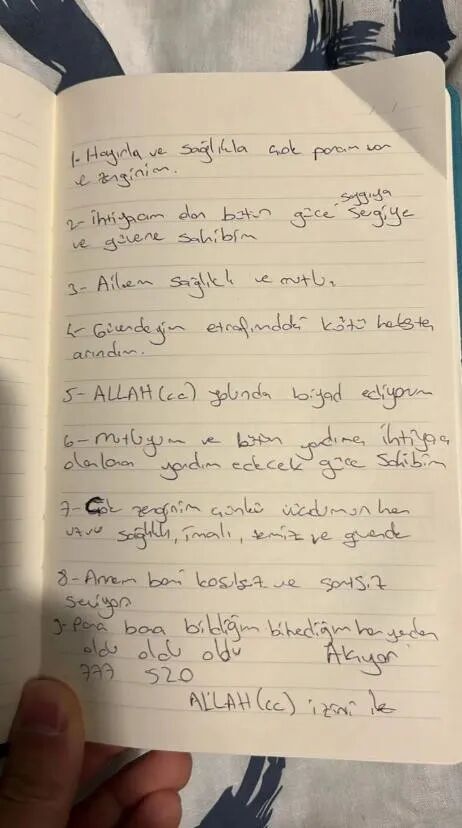 1- Hayırla ve sağlıkla çok param var
ve zenginim.
2- İhtiyacım olan bütün güce saygıya sevgiye
ve güvene sahibim
3- Ailem sağlıklı ve mutlu
4- Güvendeyim etrafımdaki kötü herkesten
arındım.
5- ALLAH(cc) yolunda ediyorum
6- mutluyum ve bütün yardıma ihtiyacı
olanlara yardım edecek güce sahibim
7- Çok zenginim çünkü vücudumun her
uzvu sağlıklı, temiz ve güvende
8- Annem beni koşulsuz ve şartsız
seviyor
9- Para bana bildiğim bilmediğim her yerden
oldu oldu oldu Akıyor
777 520
ALLAH(cc) izni ile